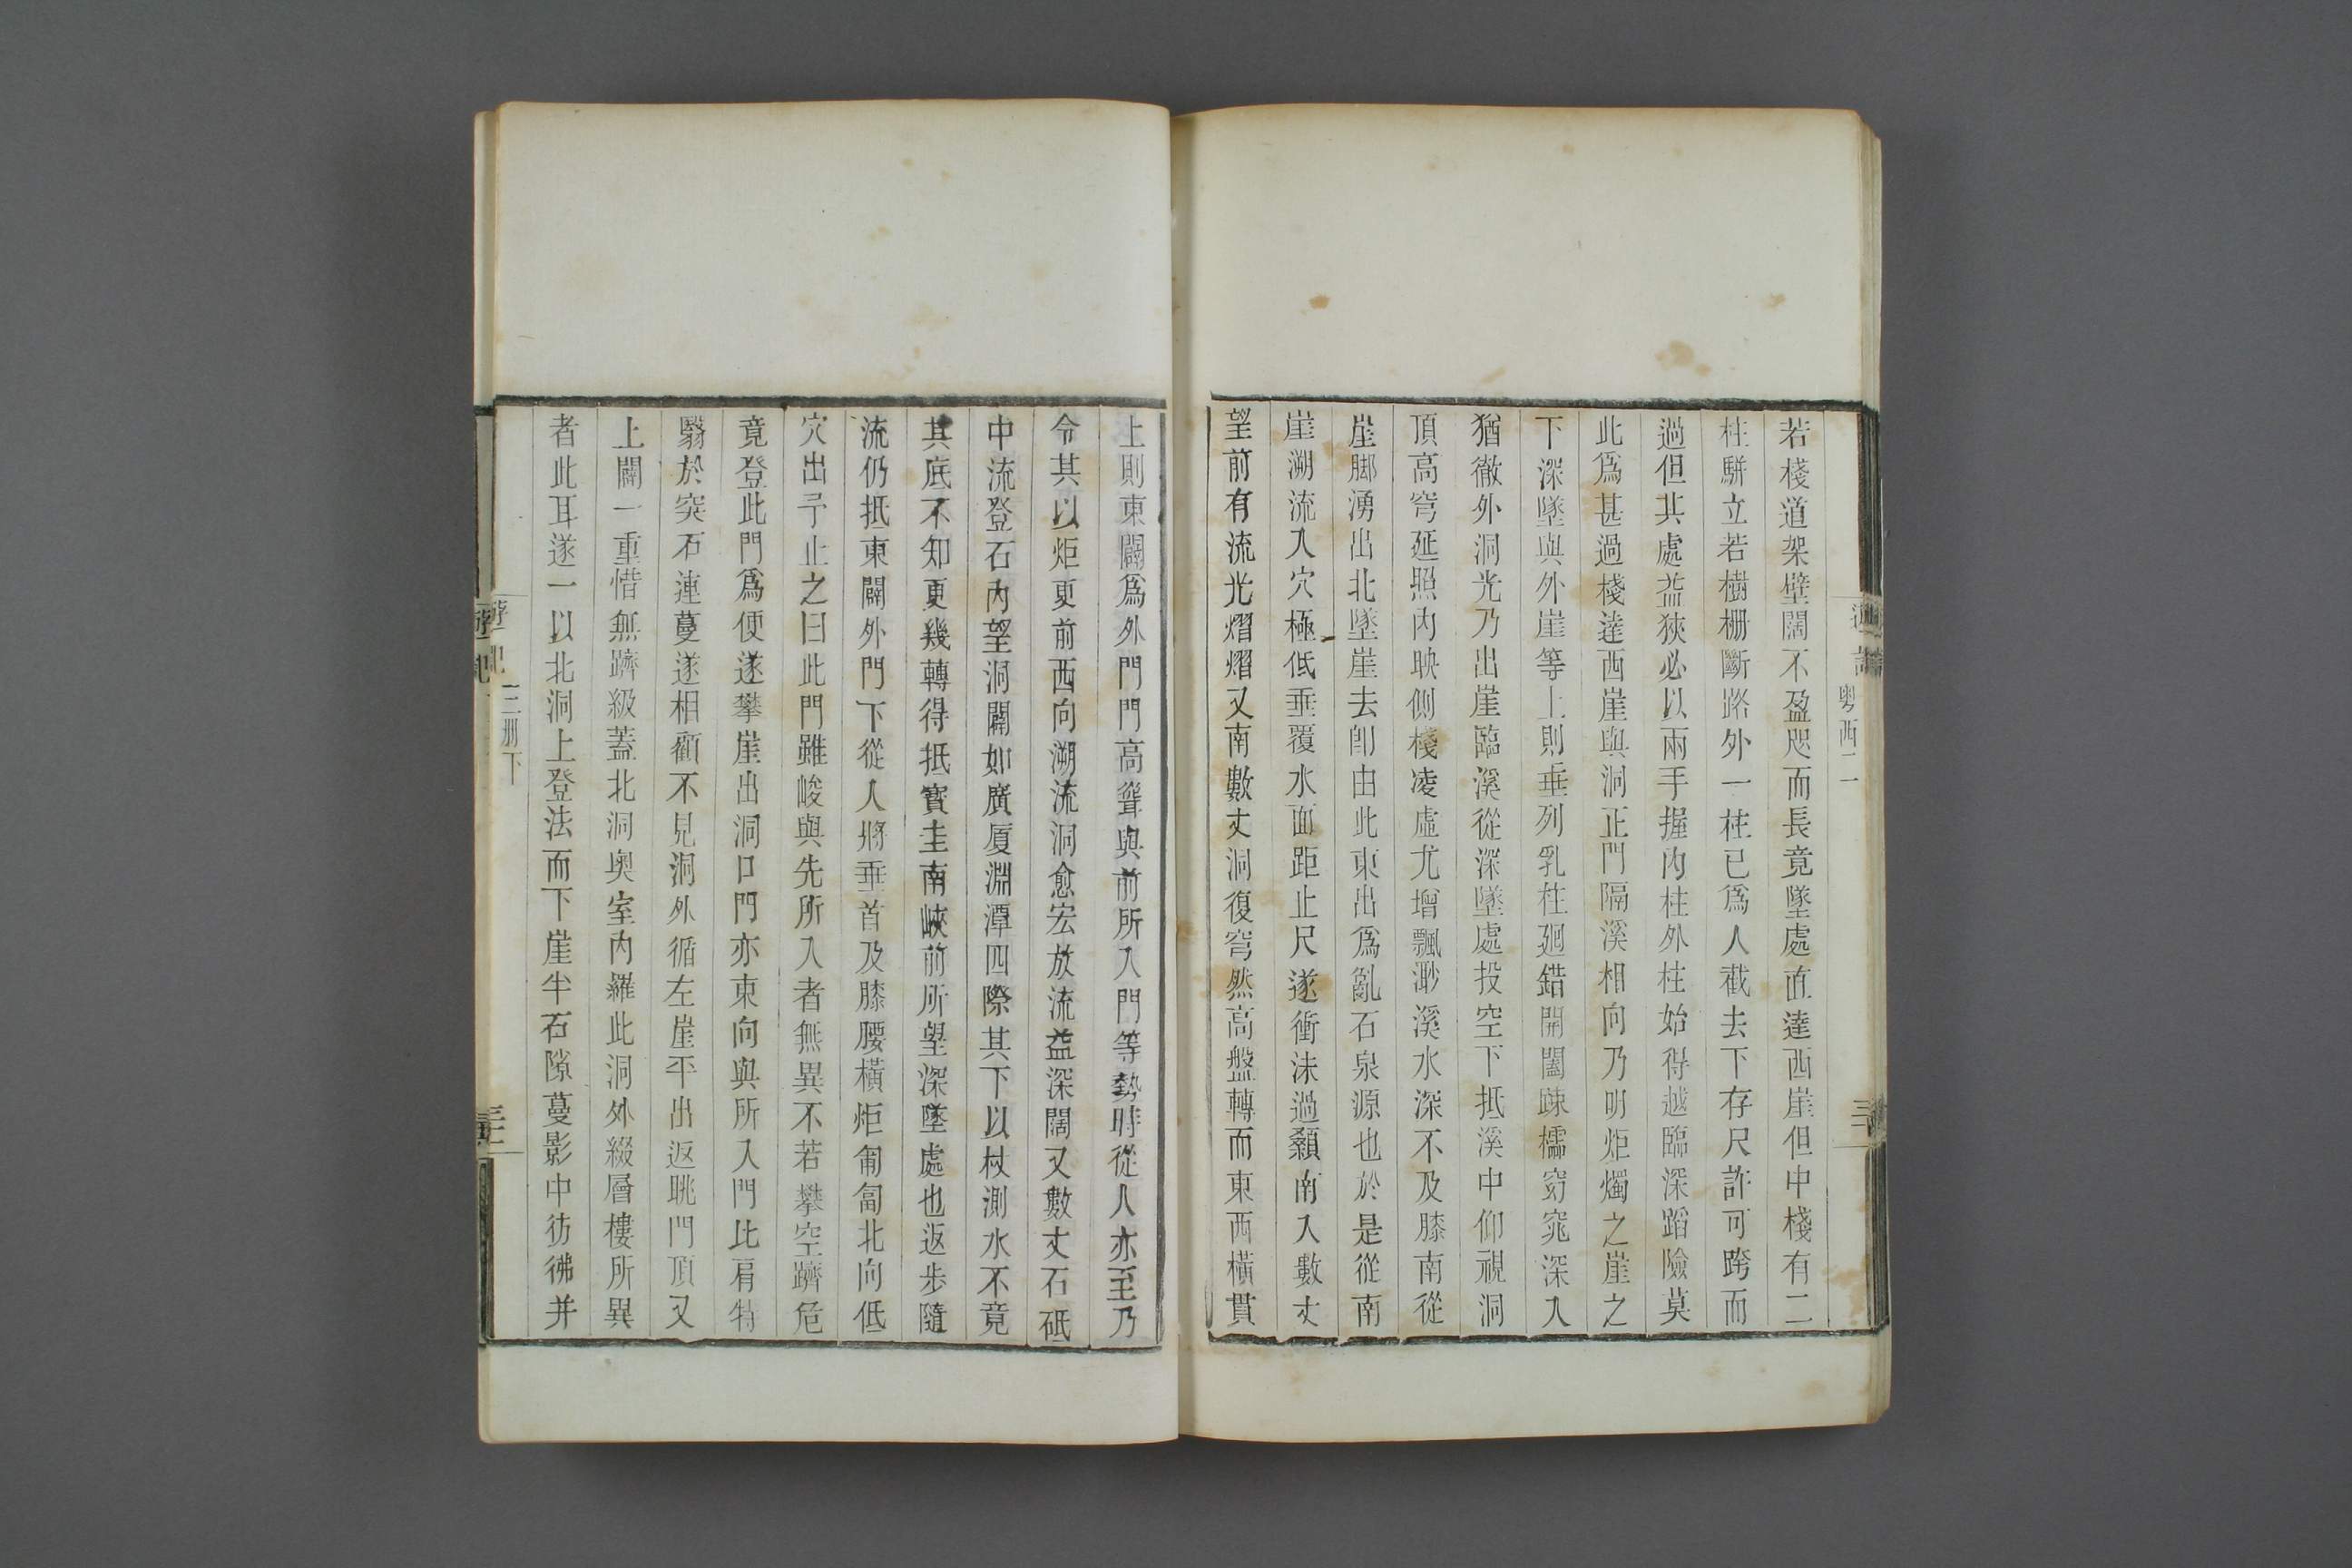 粤西二
若棧道架壁闊不盈咫而長竟墜處直達西崖但中棧有二
柱駢立若樹柵斷路外一柱已爲人截去下存尺許可跨而
過但其處益狹必以兩手握内柱外柱始得越臨深蹈險莫
此爲甚過棧達西崖與洞正門隔溪相向乃明炬燭之崖之
下深墜與外崖等上則垂列乳柱廻錯開闔疎櫺窈窕深入
猶徹外洞光乃出崖臨溪從深墜處投空下抵溪中仰視洞
頂高穹延照内映側棧凌虛尤增飄渺溪水深不及膝南從
崖脚湧出北墜崖去卽由此東出爲亂石泉源也於是從南
崖溯流入穴極低垂覆水面距止尺遂衝沫過顙南入數丈
望前有流光熠熠又南數丈洞復穹然高盤轉而東西橫貫
上則東闢爲外門門高聳與前所入門等勢時從人亦至乃
令其以炬更前西向溯流洞愈宏放流益深闊又數丈石砥
中流登石内望洞闢如廣厦淵潭四際其下以杖測水不竟
其底不知更幾轉得抵寶圭南峽前所望深墜處也返步隨
流仍抵東闢外門下從人將垂首及膝腰橫炬匍匐北向低
穴出予止之曰此門雖峻與先所入者無異不若攀空躋危
竟登此門爲便遂攀崖出洞口門亦東向與所入門比肩特
翳於突石連蔓遂相顧不見洞外循左崖平出返眺門頂又
上闢一重惜無躋級蓋北洞奥室内羅此洞外綴層樓所異
者此耳遂一以北洞上登法而下崖半石隙蔓影中彷彿并
遊記
三册下